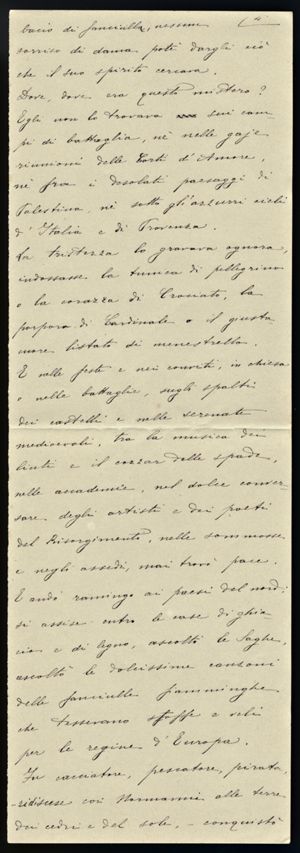 (4)
bacio di fanciulla, nessun
sorriso di dama potè dargli ciò
che il suo spirito cercava.
Dove, dove era questo mistero?
Egli non lo trovava sui cam-
pi di battaglia, nè nelle gaje
riunioni delle Corti d'Amore,
nè fra i desolati paesaggi di
Palestina, nè sotto gl'azzurri cieli
d'Italia e di Provenza.
La tristezza lo gravava ognora,
indossasse la tunica di pellegrino
o la corazza di Crociato, la
porpora di Cardinale o il giusta
cuore listato di menestrello.
E nelle feste e nei conviti, in chiesa
o nelle battaglie, sugli spalti
dei castelli e nelle serenate
medioevali, tra la musica dei
liuti e il cozzar delle spade,
nelle accademie, nel dolce conver-
sare degli artisti e dei poeti
del Risorgimento, nelle sommosse
e negli assedi, mai trovò pace.
E andò ramingo ai paesi del nord:
si assise entro le case di ghiac-
cio e di legno, ascoltò le Saghe,
ascoltò le dolcissime canzoni
delle fanciulle fiamminghe
che tessevano stoffe e veli
per le regine d'Europa.
Fu cacciatore, pescatore, pirata,
ridiscese coi Normanni alle terre
dei cedri e del sole, - conquistò